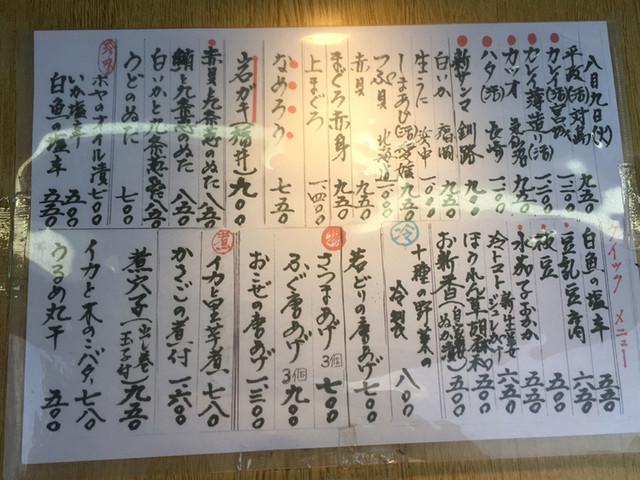 八月九日(火)
平政(活)対馬 九五〇
カレイ(活)
カレイ薄造り(活) 一、二〇〇
カツオ 気仙沼 九五〇
ハタ(活) 長崎
新サンマ 釧路 九〇〇
白いか 福岡
生うに
しまあじ(活)愛媛
つぶ貝 北海道
赤貝 九五〇
まぐろ赤身 九五〇
上まぐろ 一、四〇〇
なめろう 七五〇
岩ガキ(福井)九〇〇
赤貝と九条葱のぬた 八五〇
鮪と九条葱のぬた 八五〇
白いかと九条葱のぬた 八五〇
うどのぬた 七〇〇
ホヤのナイル漬 七〇〇
いか塩辛 五〇〇
白魚の塩辛 五五〇
クイックメニュー
白魚の塩辛 五五〇
豆乳豆腐 五〇〇
枝豆 五〇〇
水茄子おかか 五五〇
冷トマトジュレがけ 六五〇
ほうれん草胡麻和 五五〇
お新香(自家製ぬか漬) 五〇〇
冷
十種の野菜の冷製 八〇〇
若どりの唐あげ 七〇〇
揚
さつまあげ 七〇〇
ふぐ唐あげ 3個 九〇〇
おこぜの唐あげ 一、三〇〇
煮
イカと里芋煮 七八〇
かさごの煮付 一、六〇〇
煮穴子(出し巻玉子付)九五〇
イカと木のこバタ、七八〇
うるめ丸干 五〇〇